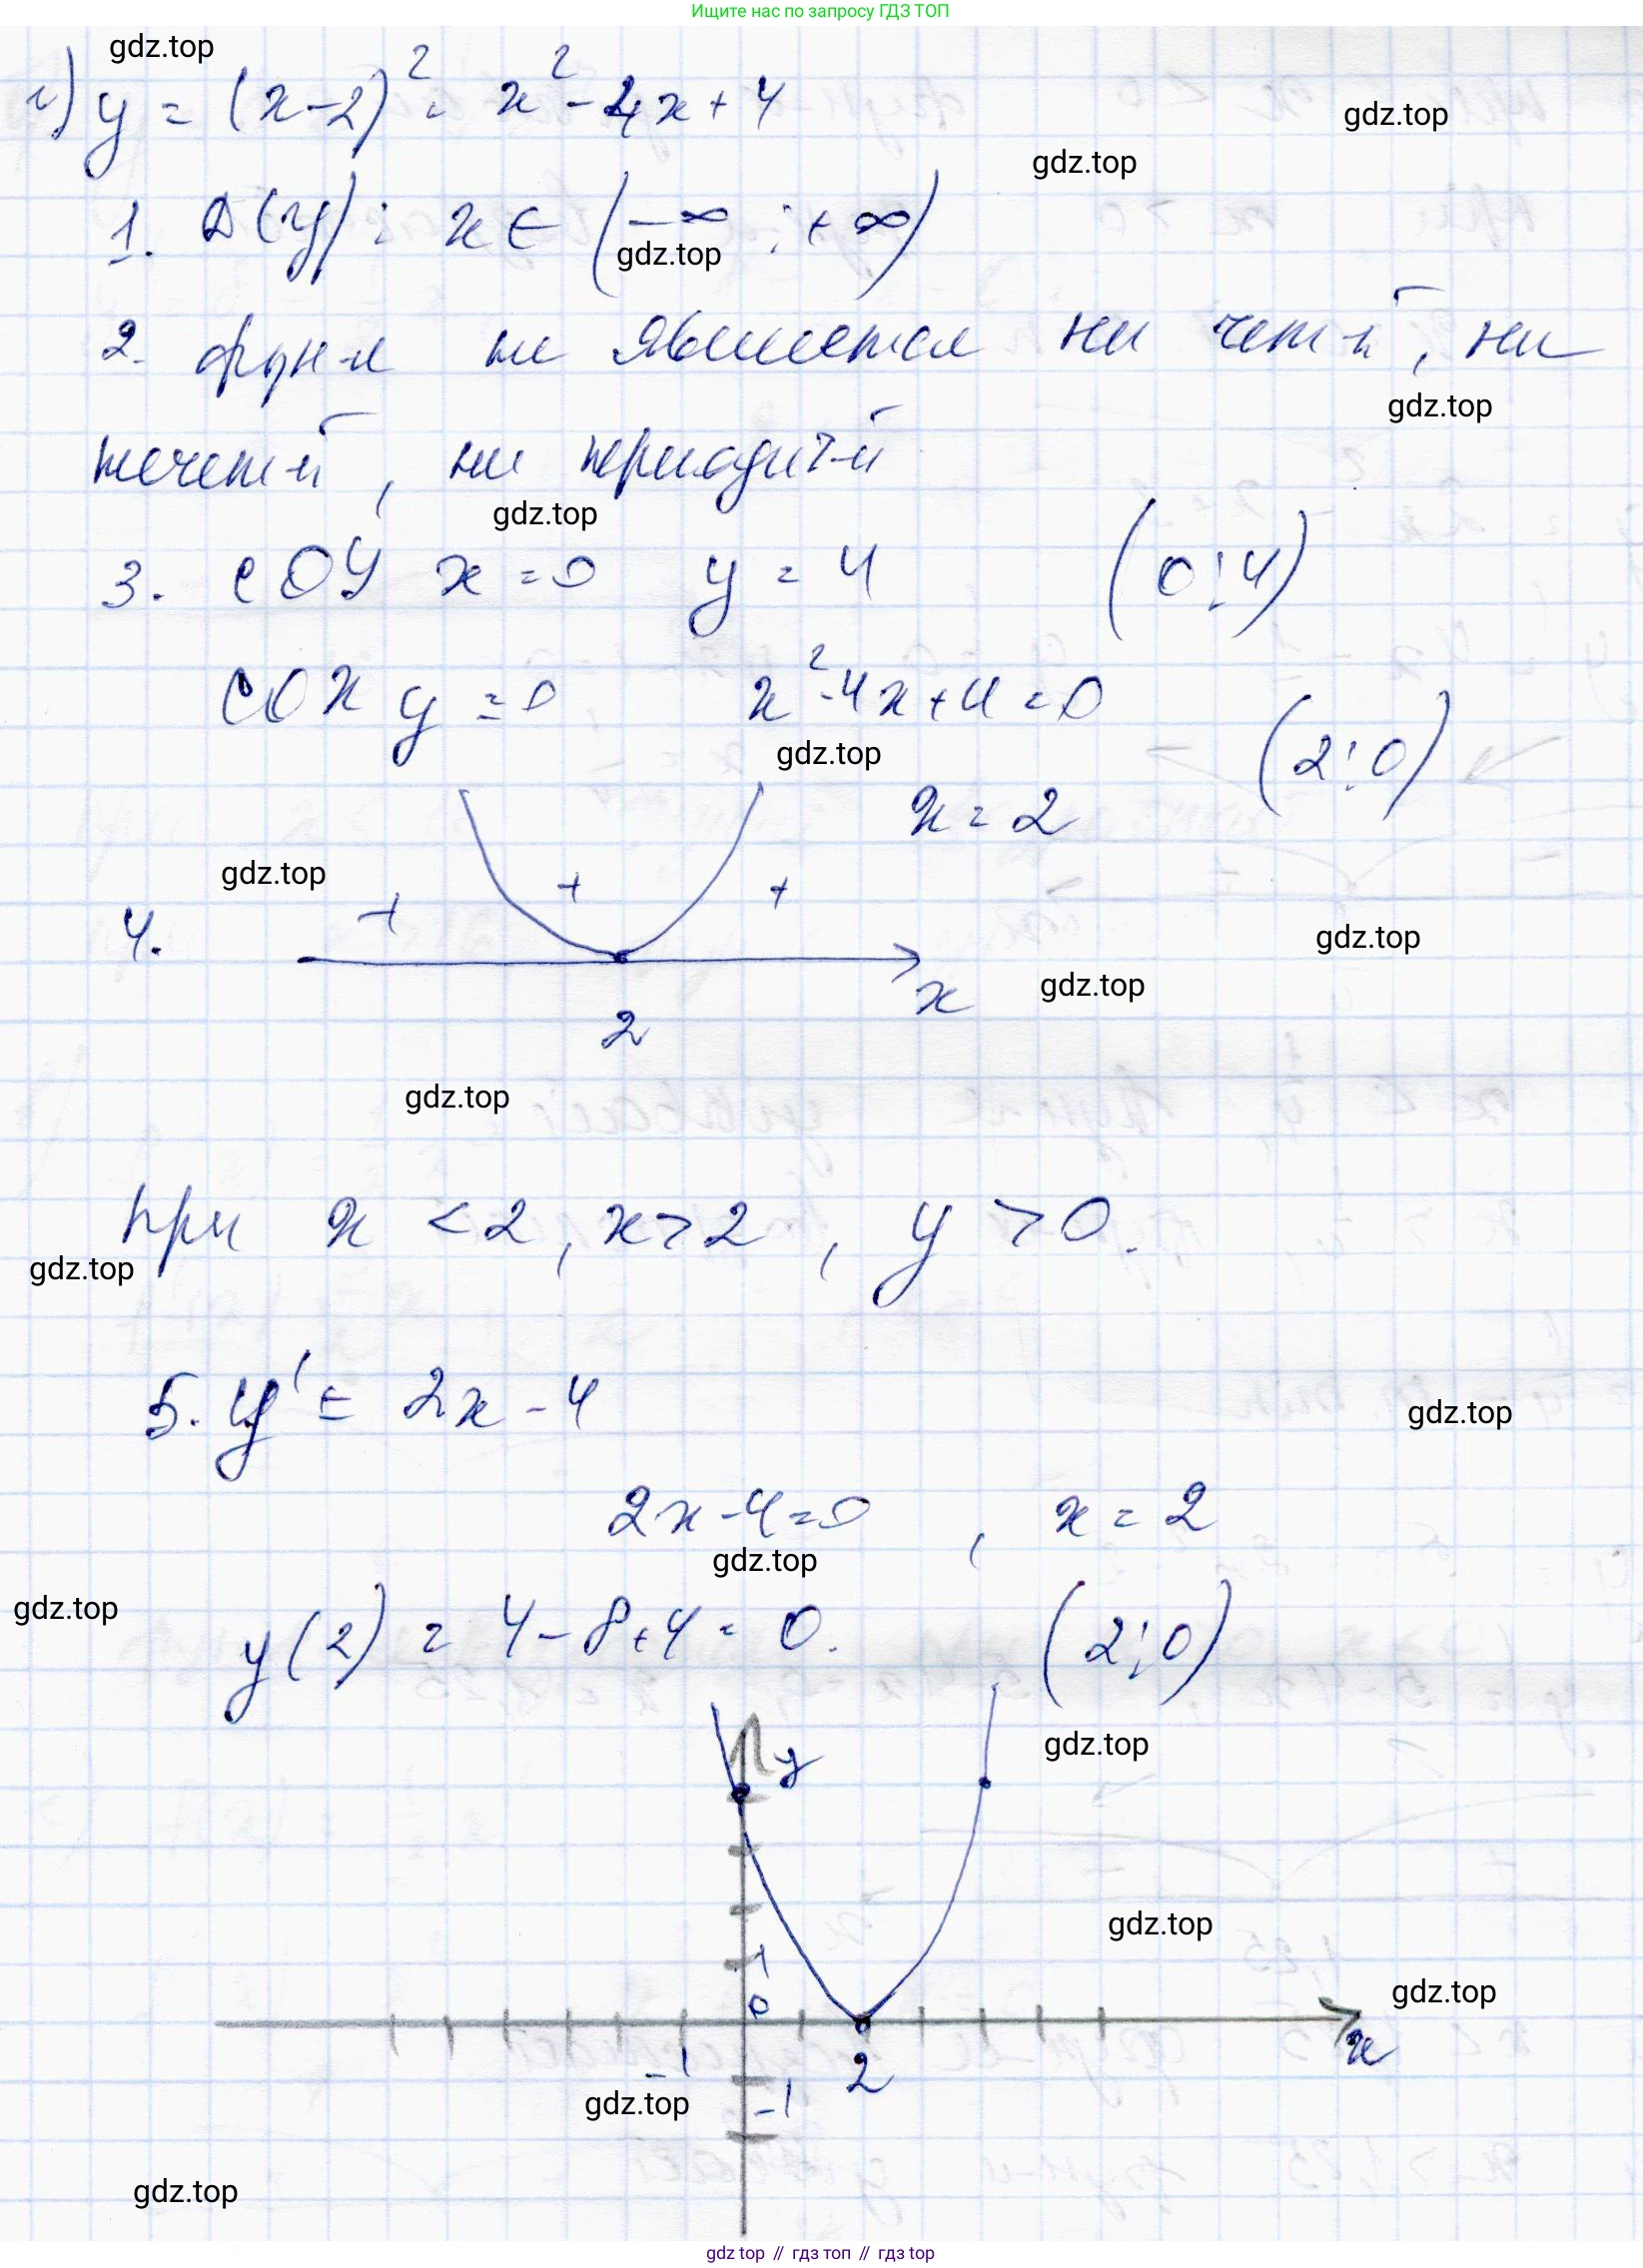 Ищите нас по запросу ГДЗ ТОП
gdz.top
г) y = (x-2)² = x² - 4x + 4
gdz.top
gdz.top
1. D(y): x ∈ (-∞ ; +∞)
gdz.top
2. фун-я не является ни четн-й, ни
gdz.top
нечетн-й, ни периодич-й
gdz.top
3. с OY x = 0 y = 4 (0; 4)
с OX y = 0 x² - 4x + 4 = 0 (2; 0)
gdz.top
x = 2
gdz.top
+ + +
4.
gdz.top
x
gdz.top
2
gdz.top
при x < 2, x > 2, y > 0.
gdz.top
5. y' = 2x - 4
gdz.top
2x - 4 = 0, x = 2
gdz.top
gdz.top
y(2) = 4 - 8 + 4 = 0. (2; 0)
gdz.top
y
gdz.top
1
gdz.top
0
x
-1 2
gdz.top
-1
gdz.top
gdz top // гдз топ // gdz top